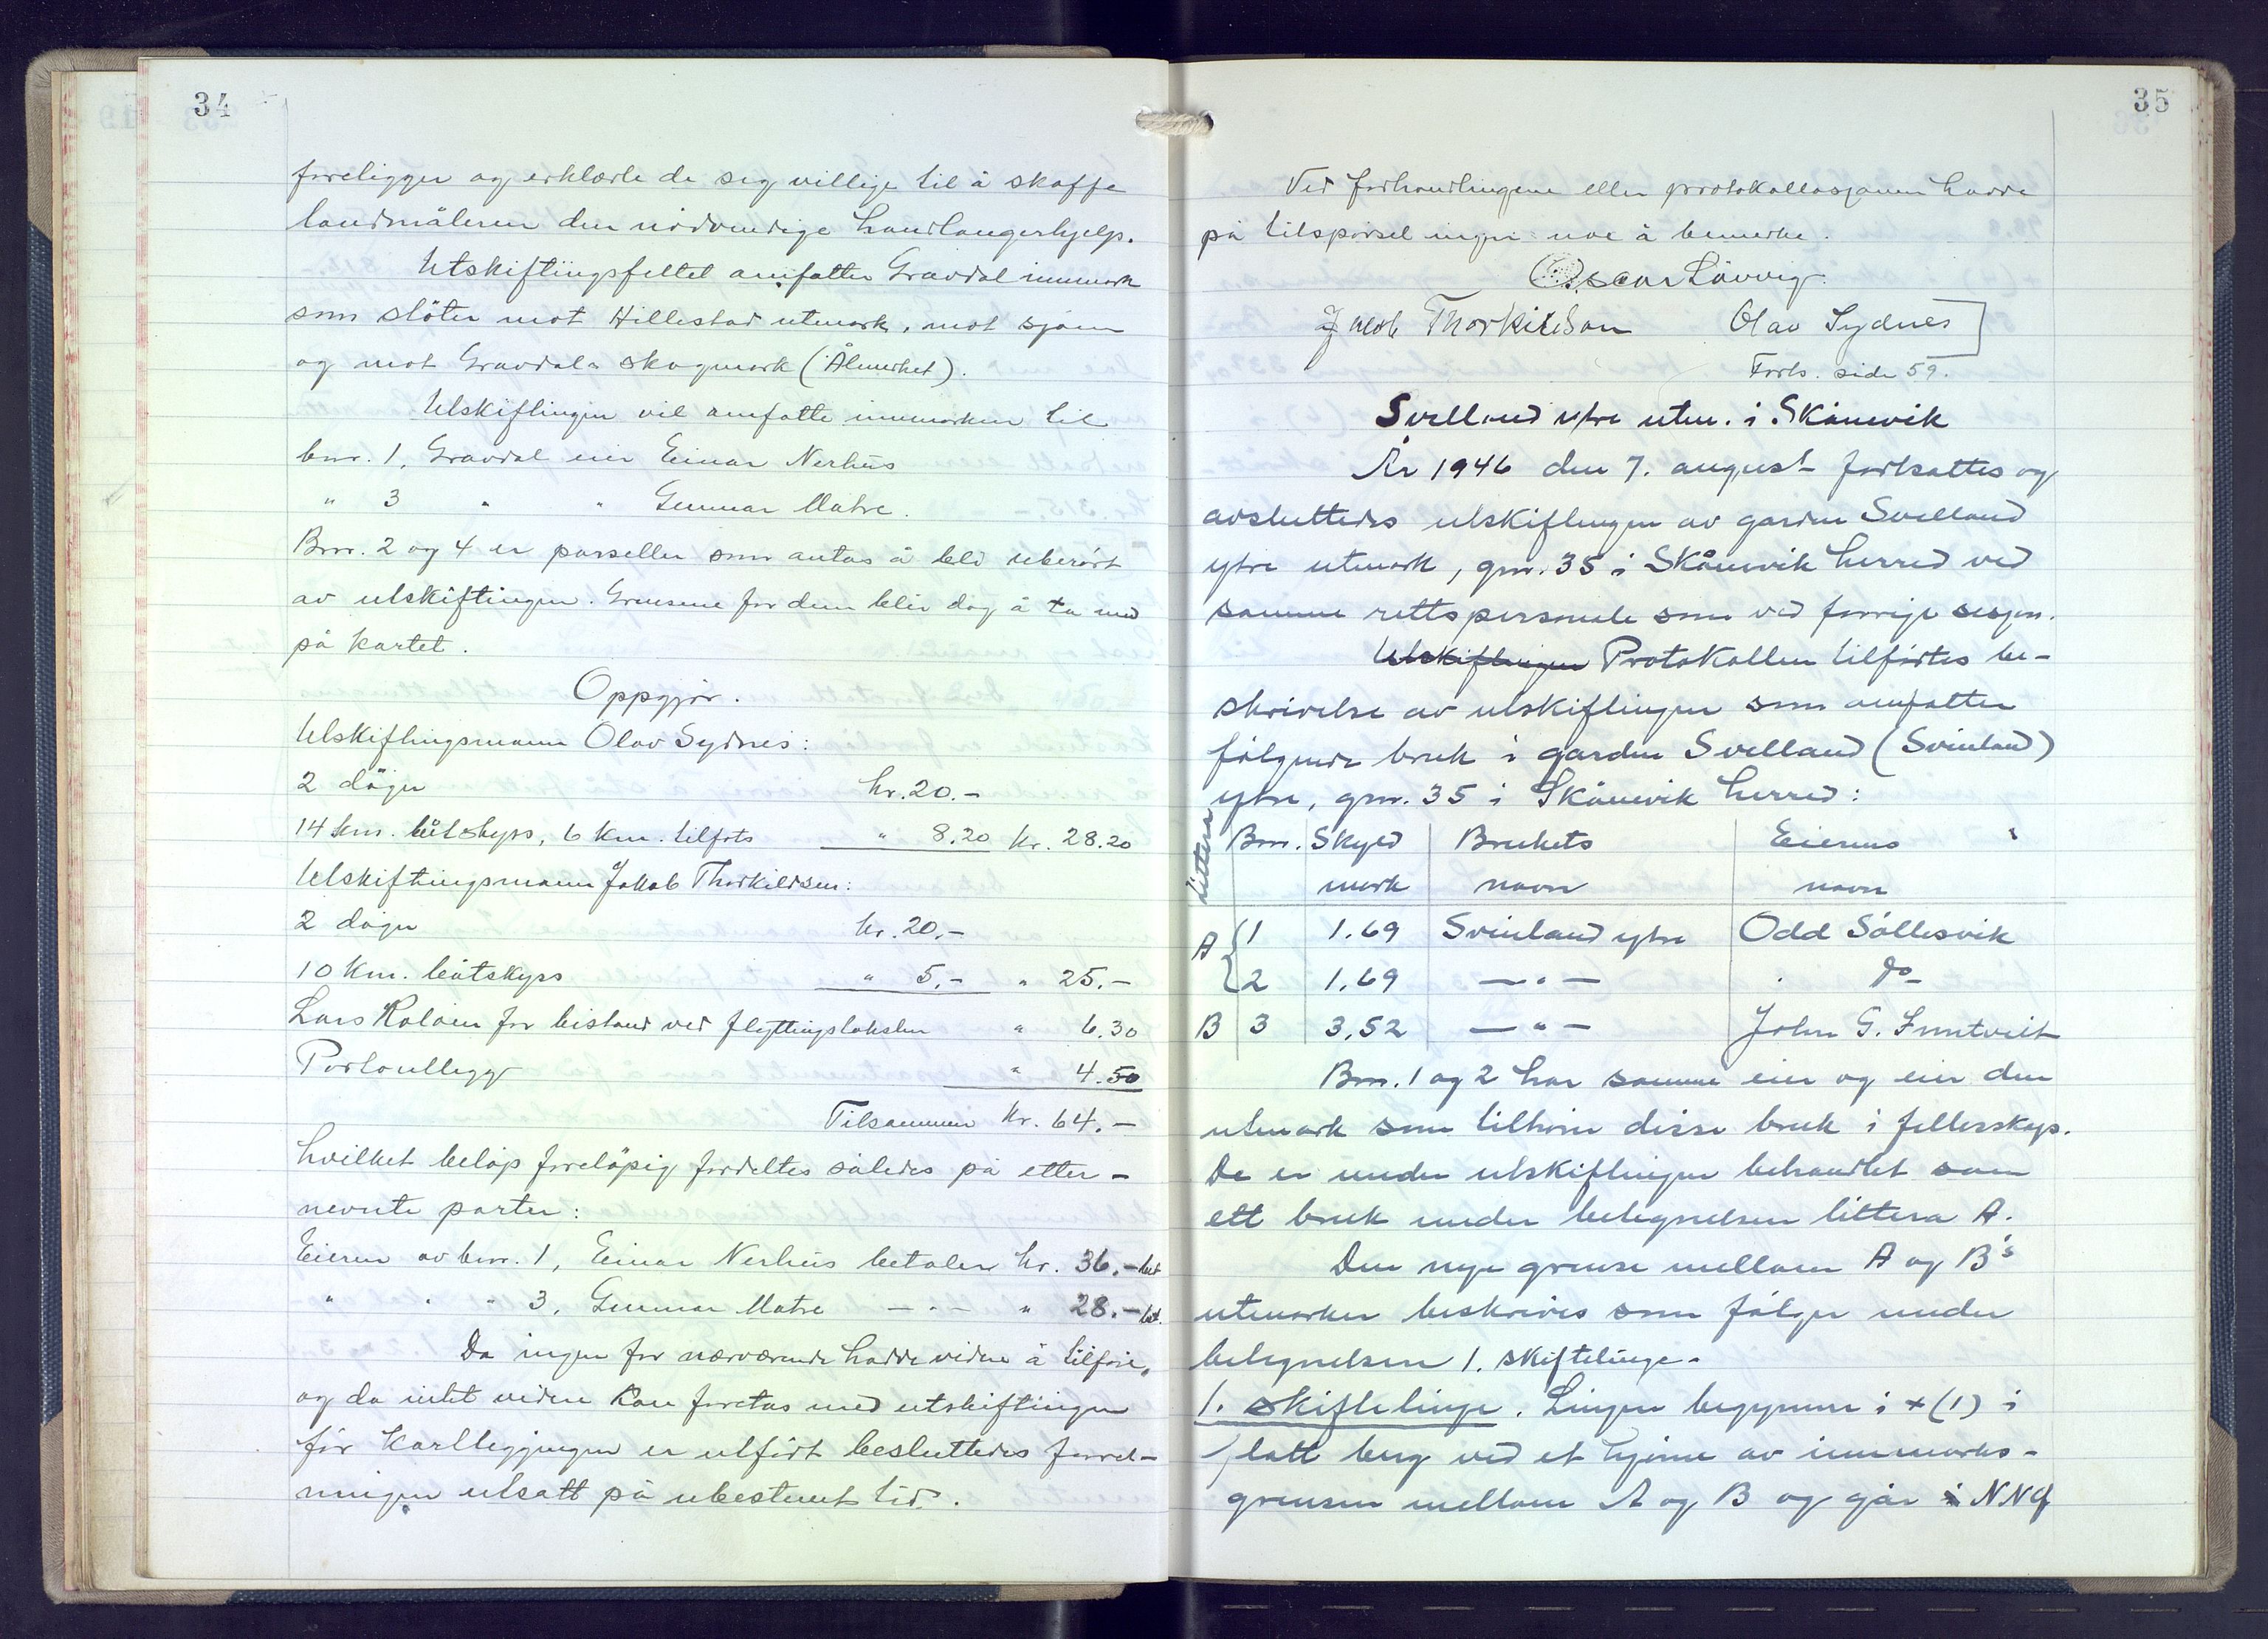 34
foreligger og erklærte de seg villige til å skaffe
landmåleren den nödvendige handlangerhjelp.
Utskiftiingsfeltet omfatter Gravdal innmark
som stöter mot Hillestad utmark, mot sjöen
og mot Gravdals skogmark (Ålmerket).
Utskiftingen vil omfatte innmarken til
bnr. 1, Gravdal eier Einar Nerhus
" 3 " " Gunnar Matre.
Bnr. 2 og 4 er parseller som antas å bli uberört
av utskiftingen. Grensene for dem blir dog å ta med
på kartet.
Oppgjör.
Utskiftingsmann Olav Sydnes:
2 döger kr. 20.-
14 km. båtskyss, 6 km. tilfots " 8.20 kr. 28.20
Utskiftningsmann Jakob Thorkildsen:
2 döger kr. 20.-
10 km. båtskyss " 5.- " 25.-
Lars for bistand ved flyttingstaksten " 6.30
Portoutlegg " 4.50
Tilsammen kr. 64.-
hvilket belöp forelöpig fordeltes således på etter-
nevnte parter:
Eieren av bnr. 1, Einar Nerhus betaler kr. 36.- bet
" " " 3, Gunnar Matre - " - " 28.- bet.
Da ingen for nærværende hadde videre å tilföie,
og da intet videre kan foretas med utskiftingen
för kartleggingen er utfört besluttedes forret-
ningen utsatt på ubestemt tid.
35
Ved forhandlingene eller protokollasjonen hadde
på tilspörsel ingen noe å bemerke.
Oscar Lövvig
Jacob Thorkildsen Olav Sydnes
Forts. side 59.
Svelland ytre utm. i Skånevik
År 1946 den 7. august fortsattes og
avsluttedes utskiftingen av garden Svelland
ytre utmark, gnr. 35 i Skånevik herred ved
samme rettspersonale som ved forrige sesjon.
Utskiftingen Protokollen tilförtes be-
skrivelse av utskiftingen som omfatter
fölgende bruk i garden Svelland (Svinland)
ytre, gnr. 35 i Skånevik herred:
Littera Bnr. Skyld Brukets Eierens
mark navn navn
A { 1 1.69 Svinland ytre Odd Söllesvik
2 1.69 - " - " do
B 3 3.52 - " - John G. Tmtveit
Bnr. 1 og 2 har samme eier og eier den
utmark som tilhörer disse bruk i fellesskap.
De er under utskiftingen behandlet som
ett bruk under betegnelsen littera A.
Den nye grense mellom A og B's
utmarker beskrives som fölger under
betegnelsen 1. skiftelinje.
1. skiftelinje. Linjen begynner i + (1) i
flatt berg ved et hjörne av innmarks-
grensen mellom A og B og går i NNØ